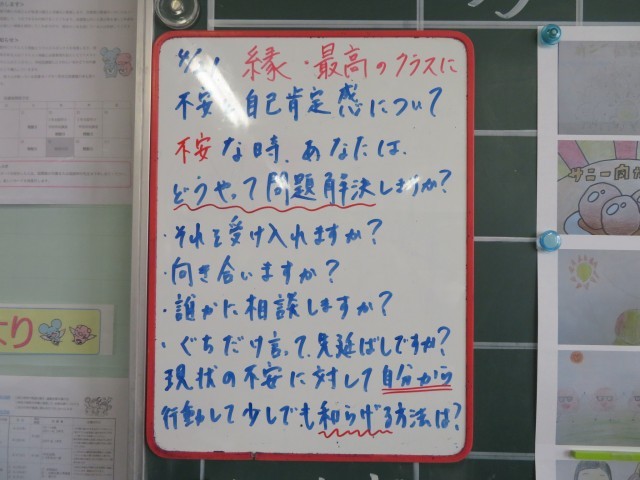 縁・最高のクラスに
不安と自己肯定感について
不安な時、あなたは、
どうやって問題解決しますか?
・それを受け入れますか?
・向き合いますか?
・誰かに相談しますか?
・ぐちだけ言って、先延ばしですか?
現状の不安に対して自分から
行動して少しでも和らげる方法は?
サニー向
より